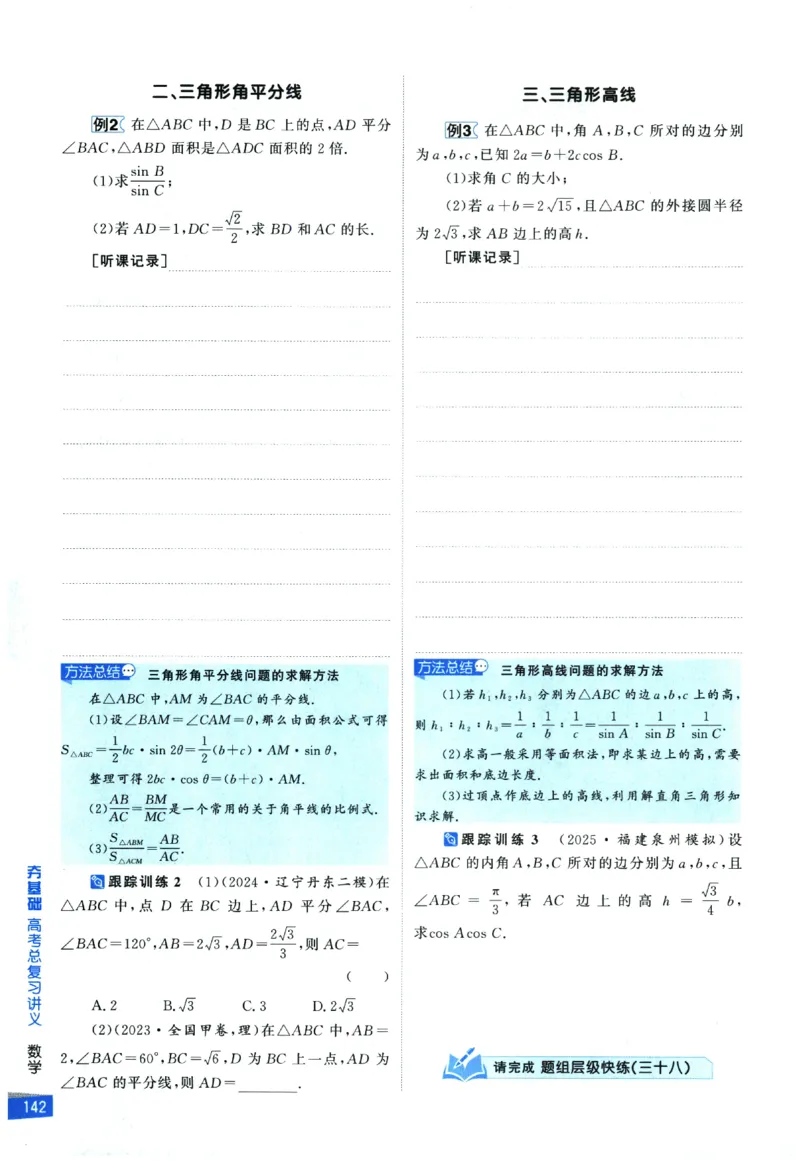 二、三角形角平分线
例2 在△ABC 中,D 是 BC 上的点,AD 平分
∠BAC,△ABD 面积是△ADC 面积的 2 倍.
(1)求$\frac{\sin B}{\sin C}$;
(2)若 AD=1,DC=$\frac{\sqrt{2}}{2}$,求 BD 和 AC 的长.
[听课记录]
方法总结 三角形角平分线问题的求解方法
在△ABC 中,AM 为∠BAC 的平分线.
(1)设∠BAM=∠CAM=θ,那么由面积公式可得
$S_{△ABC}=\frac{1}{2}bc·\sin 2θ=\frac{1}{2}(b+c)·AM·\sin θ$,
整理可得 2bc·cos θ=(b+c)·AM.
(2)$\frac{AB}{AC}=\frac{BM}{MC}$是一个常用的关于角平线的比例式.
(3)$\frac{S_{△ABM}}{S_{△ACM}}=\frac{AB}{AC}$.
跟踪训练 2 (1)(2024·辽宁丹东二模)在
△ABC 中,点 D 在 BC 边上,AD 平分∠BAC,
∠BAC=120°,AB=2$\sqrt{3}$,AD=$\frac{2\sqrt{3}}{3}$,则 AC=
( )
A.2 B.$\sqrt{3}$ C.3 D.2$\sqrt{3}$
(2)(2023·全国甲卷,理)在△ABC 中,AB=
2,∠BAC=60°,BC=$\sqrt{6}$,D 为 BC 上一点,AD 为
∠BAC 的平分线,则 AD=______.
三、三角形高线
例3 在△ABC 中,角 A,B,C 所对的边分别
为 a,b,c,已知 2a=b+2ccos B.
(1)求角 C 的大小;
(2)若 a+b=2$\sqrt{15}$,且△ABC 的外接圆半径
为 2$\sqrt{3}$,求 AB 边上的高 h.
[听课记录]
方法总结 三角形高线问题的求解方法
(1)若 $h_1,h_2,h_3$ 分别为△ABC 的边 a,b,c 上的高,
则 $h_1:h_2:h_3=\frac{1}{a}:\frac{1}{b}:\frac{1}{c}=\frac{1}{\sin A}:\frac{1}{\sin B}:\frac{1}{\sin C}$.
(2)求高一般采用等面积法,即求某边上的高,需要
求出面积和底边长度.
(3)过顶点作底边上的高线,利用解直角三角形知
识求解.
跟踪训练 3 (2025·福建泉州模拟)设
△ABC 的内角 A,B,C 所对的边分别为 a,b,c,且
∠ABC=$\frac{π}{3}$,若 AC 边上的高 h=$\frac{\sqrt{3}}{4}$b,
求cos Acos C.
请完成 题组层级快练(三十八)
夯基础 高考总复习讲义 数学
142